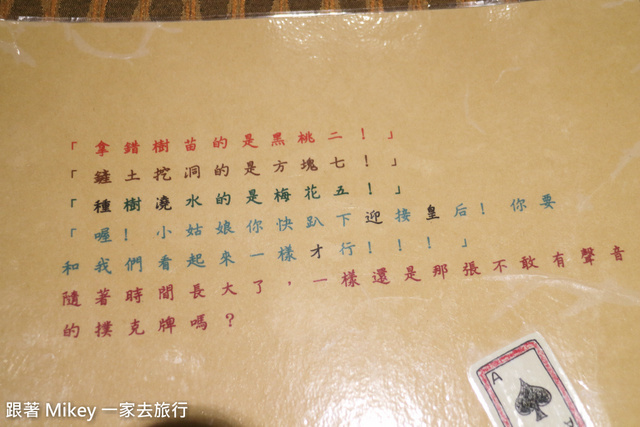 「拿錯樹苗的是黑桃二！」
「鏟土挖洞的是方塊七！」
「種樹澆水的是梅花五！」
「喔！小姑娘你快趴下迎接皇后！你要
和我們看起來一樣才行！！！」
隨著時間長大了，一樣還是那張不敢有聲音
的撲克牌嗎？
A
A
跟著 Mikey 一家去旅行